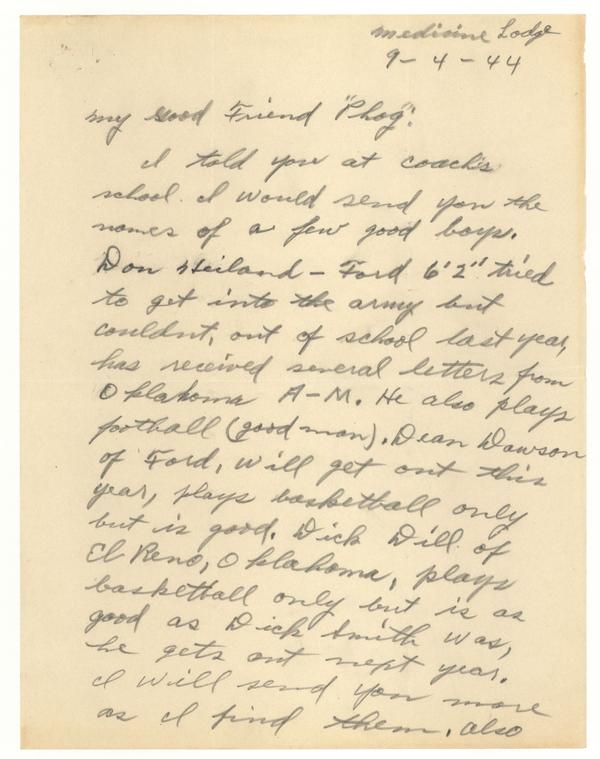 medicine Lodge
9-4-44
my good Friend "Phog":
I told you at coach's
school. I would send you the
names of a few good boys.
Don Heiland - Ford 6'2" tried
to get into the army but
couldnt, out of school last year,
has received several letters from
Oklahoma A-M. He also plays
football (good man). Dean Dawson
of Ford, will get out this
year, plays basketball only
but is good. Dick Dill of
El Reno, Oklahoma, plays
basketball only but is as
good as Dick Smith was,
he gets out next year.
I will send you more
as I find them, also